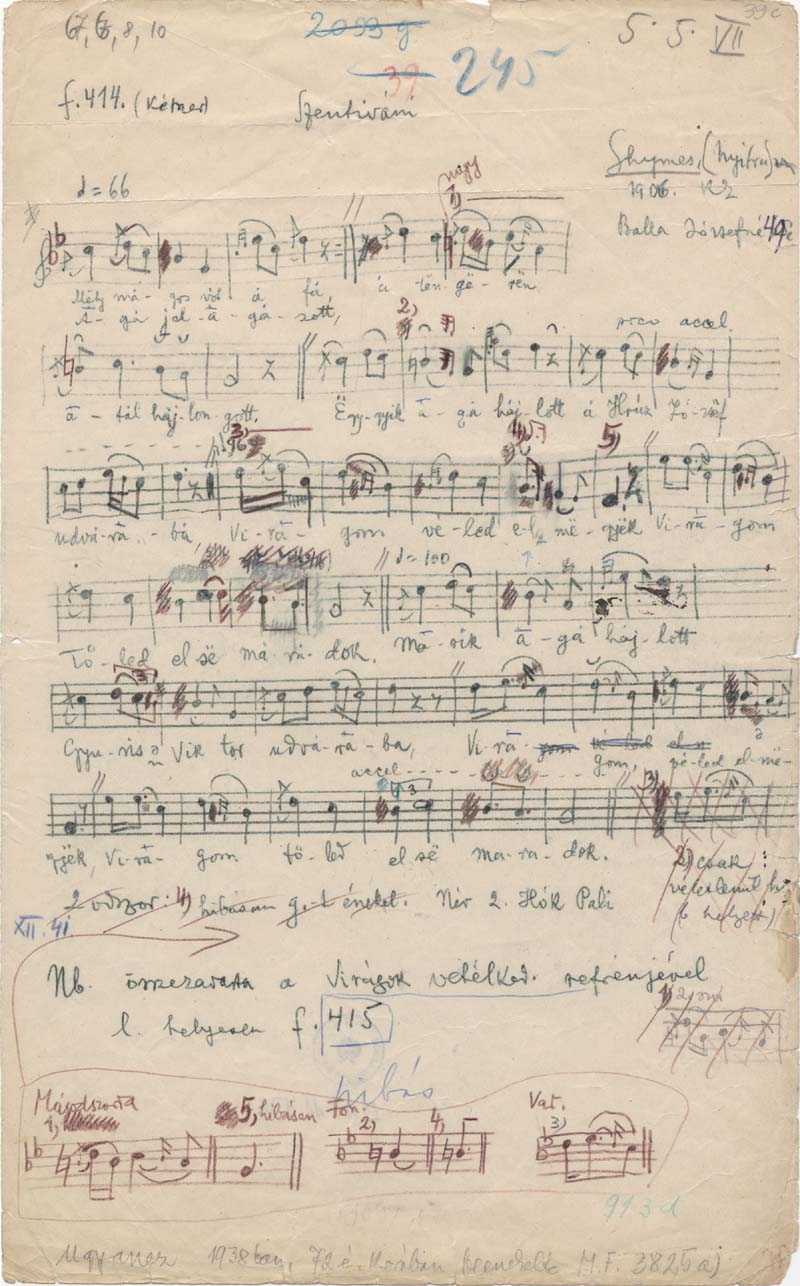 67, 6, 8, 10
2099 g
5. 5. VII
39 c
39
245
f. 414. (Kétner)
Szentiváni
Ghymes, (Nyitra)
1906. KZ
Balla Józsefné 49 é
♩ = 66
nagy
1)
Mely má - gos vót á fá, á tën - gë - rën
Á - gá jel - á - gá - zott,
2)
poco accel.
á - tál háj - lon - gott, Ëgy - nyik á - gá háj - lott á Hrúz Józsëf
3)
5)
udvá - rá - bá, Vi - rá - gom vé - led el - më - gyëk Vi - rá - gom
♩ = 100
Tő - led el së má - rá - dok. Má - sik á - gá háj - lott
3
Gyu - ris Vik tor udvá - rá - ba, Vi - rá - gom vé - led el
gom, vé - led el - më -
accel - - - -
3
3)
gyëk, Vi - rá - gom tő - led el së ma - ra - dok.
2) csak :
véletlenül
(b helyett)
2 odszor: 4) hibásan g-t énekel. Név 2. Hók Pali
XII. 41.
Nb. összezavarta a Virágok vetélked. refrénjével
l. helyesen f. 415
1) 2
hibás
Másodszorra
1)
5, hibásan
2)
4)
Var.
3)
913 d
Ugyanez 1938ban, 72 é. korában M.F. 382